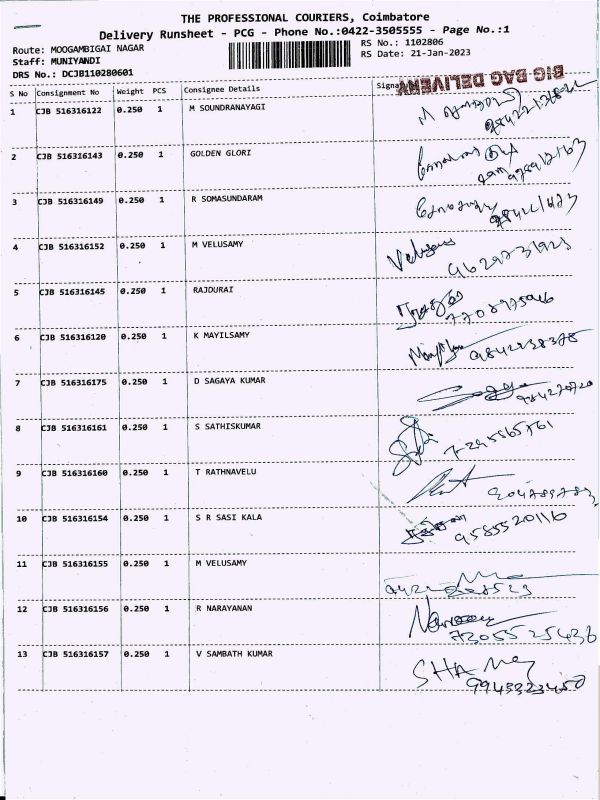 THE PROFESSIONAL COURIERS, Coimbatore
Delivery Runsheet - PCG - Phone No.:0422-3505555 - Page No.:1
Route: MOOGAMBIGAI NAGAR
RS No.: 1102806
Staff: MUNIYANDI
RS Date: 21-Jan-2023
DRS No.: DCJB110280601
BIG BAG DELIVERY
S No Consignment No Weight PCS Consignee Details
1 CJB 516316122 0.250 1 M SOUNDRANAYAGI
2 CJB 516316143 0.250 1 GOLDEN GLORI
3 CJB 516316149 0.250 1 R SOMASUNDARAM
4 CJB 516316152 0.250 1 M VELUSAMY
9629731923
5 CJB 516316145 0.250 1 RAJDURAI
7708975946
6 CJB 516316120 0.250 1 K MAYILSAMY
9842238378
7 CJB 516316175 0.250 1 D SAGAYA KUMAR
8 CJB 516316161 0.250 1 S SATHISKUMAR
9 CJB 516316160 0.250 1 T RATHNAVELU
10 CJB 516316154 0.250 1 S R SASI KALA
9585520116
11 CJB 516316155 0.250 1 M VELUSAMY
12 CJB 516316156 0.250 1 R NARAYANAN
7305525436
13 CJB 516316157 0.250 1 V SAMBATH KUMAR
9945323450